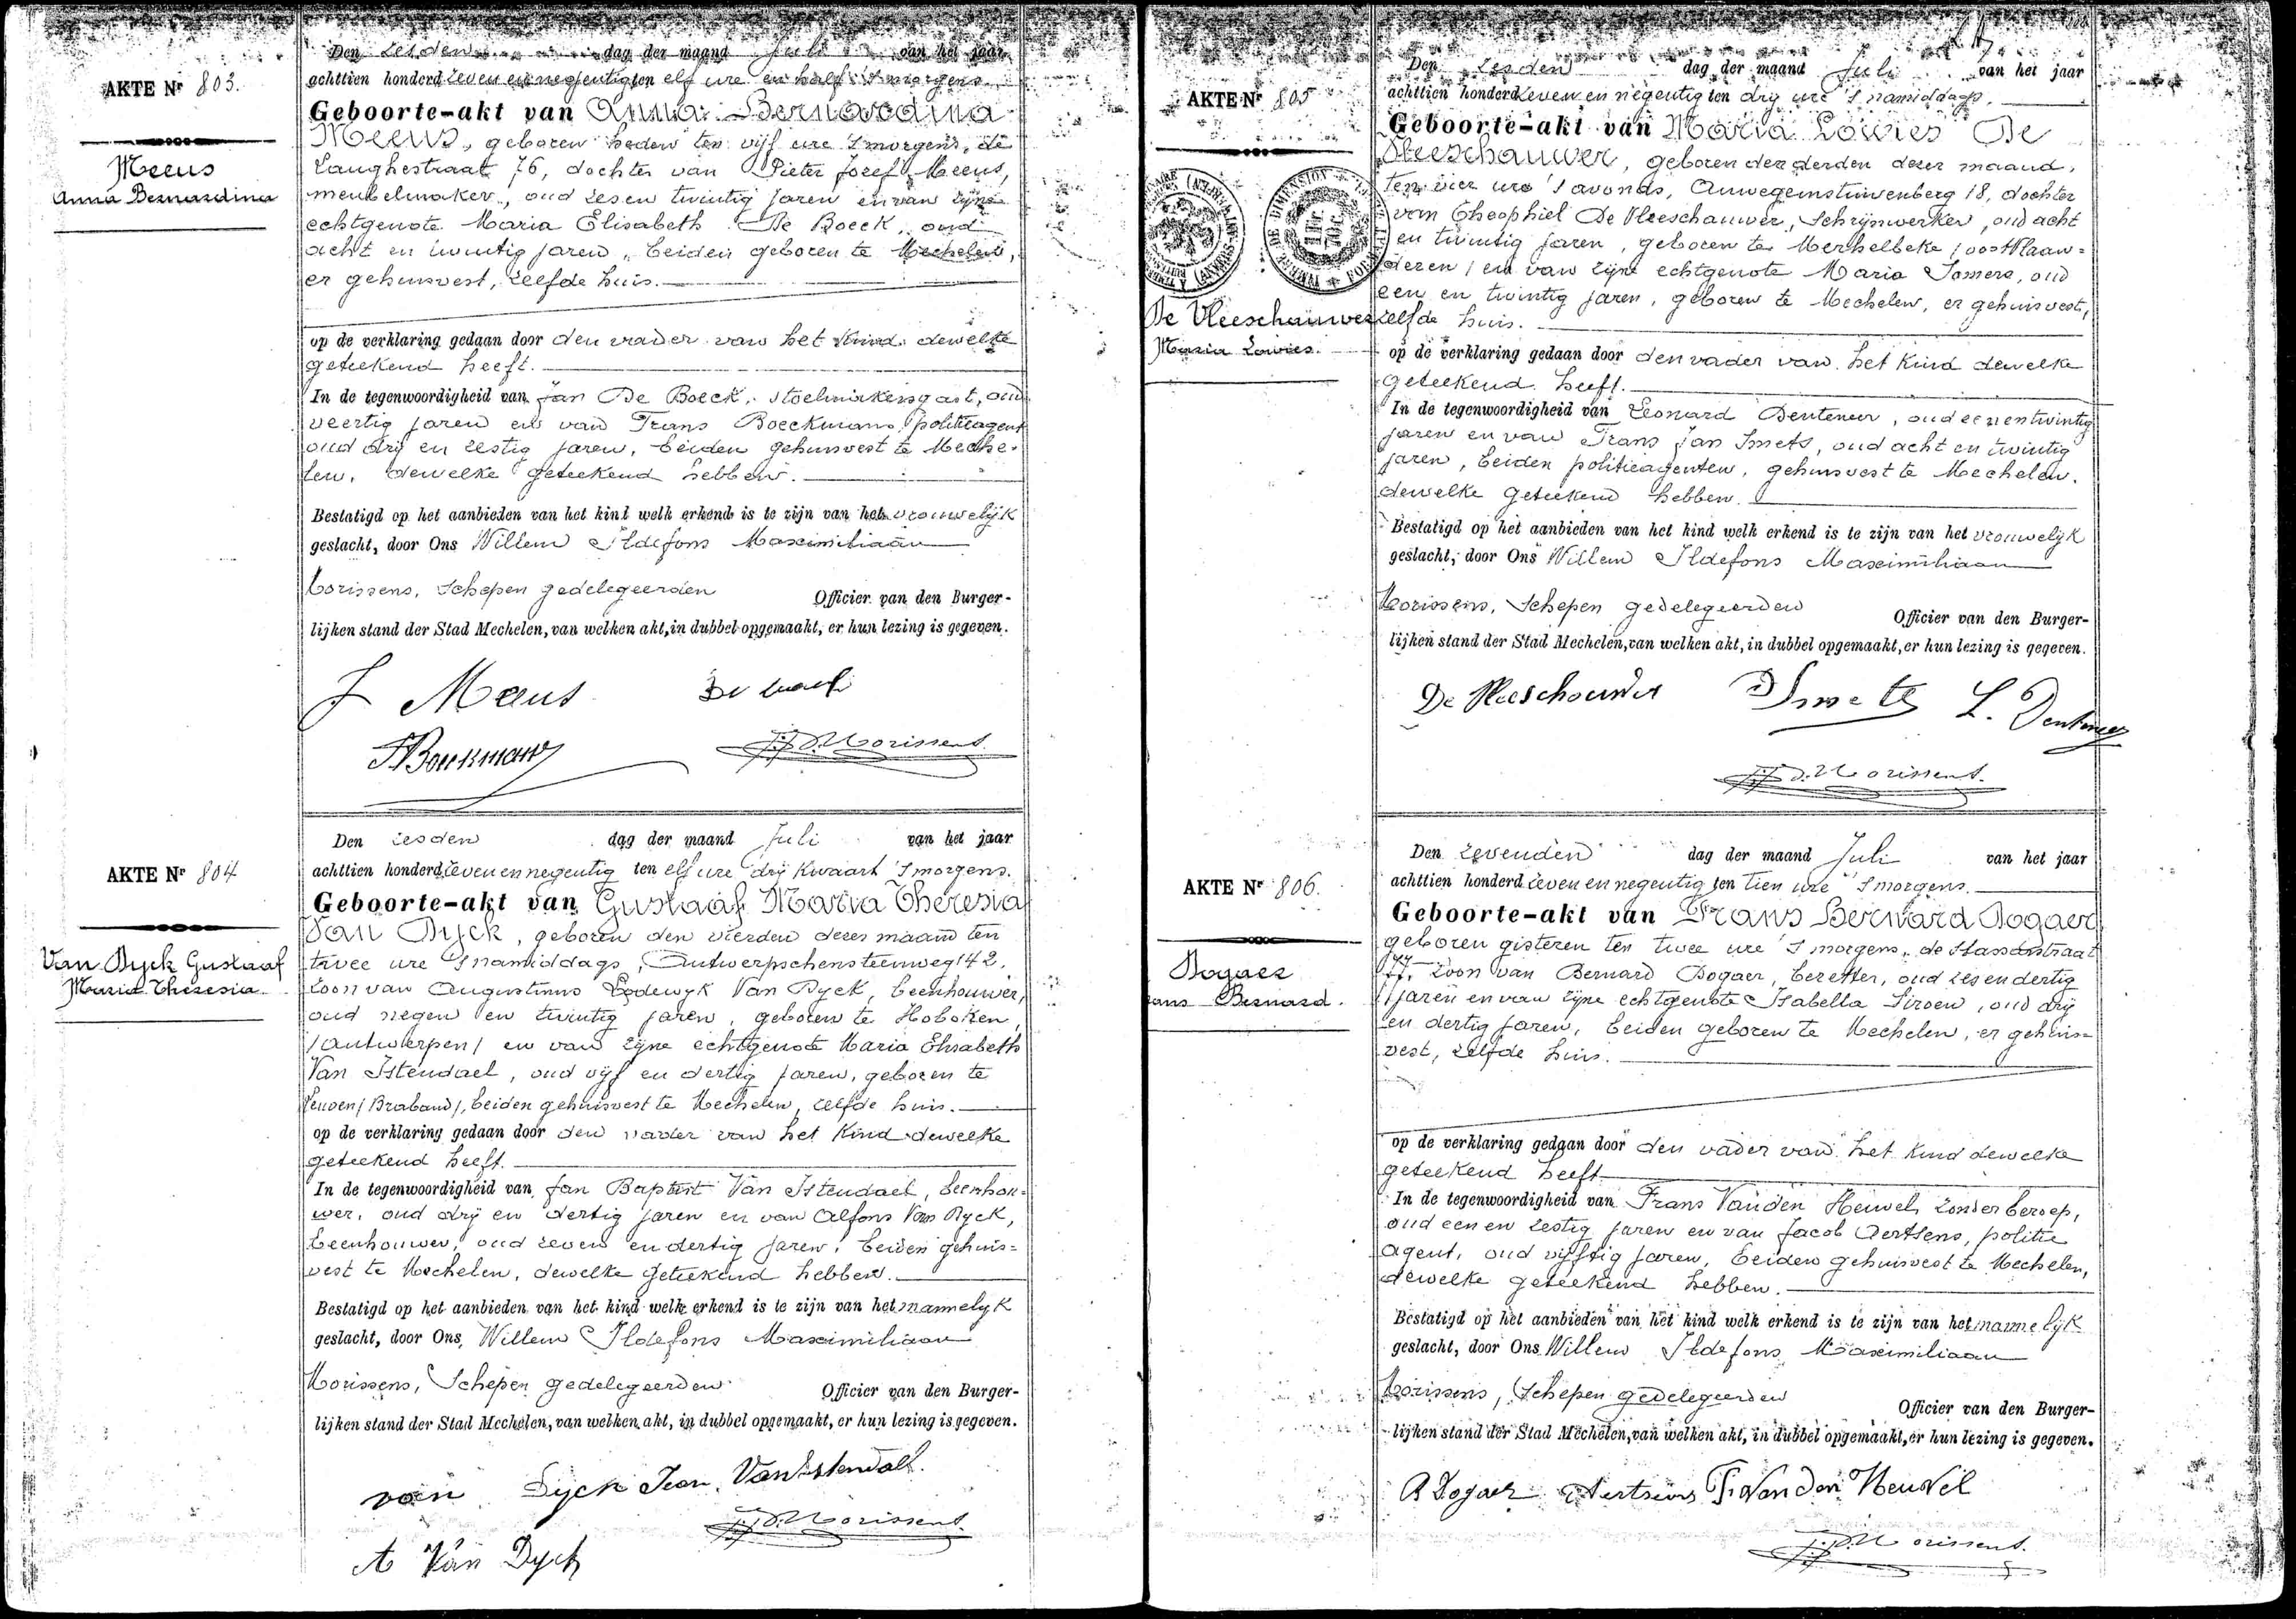 AKTE Nr 803.
Meeus
Anna Bernardina
Den zesden dag der maand Juli van het jaar
achttien honderd zeven en negentig ten elf ure en half 's morgens.
Geboorte-akt van Anna Bernardina
Meeus, geboren heden ten vijf ure 's morgens, de
Langhestraat 76, dochter van Pieter Jozef Meeus,
meubelmaker, oud zes en twintig jaren en van zijne
echtgenote Maria Elisabeth De Boeck, oud
acht en twintig jaren, beiden geboren te Mechelen,
er gehuisvest, zelfde huis.
op de verklaring gedaan door den vader van het kind dewelke
geteekend heeft.
In de tegenwoordigheid van Jan De Boeck, stoelmakersgast, oud
veertig jaren en van Frans Boeckmans, politieagent
oud drij en zestig jaren, beiden gehuisvest te Meche-
len, dewelke geteekend hebben.
Bestatigd op het aanbieden van het kind welk erkend is te zijn van het vrouwelijk
geslacht, door Ons Willem Ildefons Maximiliaan
Morissens, Schepen gedelegeerden Officier van den Burger-
lijken stand der Stad Mechelen, van welken akt, in dubbel opgemaakt, er hun lezing is gegeven.
J Meeus
Morissens
AKTE Nr 804
Van Dyck Gustaaf
Maria Theresia
Den zesden dag der maand Juli van het jaar
achttien honderd zeven en negentig ten elf ure drij kwaart 's morgens.
Geboorte-akt van Gustaaf Maria Theresia
Van Dyck, geboren den vierden dezer maand ten
twee ure 's namiddags, Antwerpschensteenweg 142,
zoon van Augustinus Lodewyk Van Dyck, beenhouwer,
oud negen en twintig jaren, geboren te Hoboken
/Antwerpen/ en van zijne echtgenote Maria Elisabeth
Van Istendael, oud vijf en dertig jaren, geboren te
Leuven /Braband/, beiden gehuisvest te Mechelen, zelfde huis.
op de verklaring gedaan door den vader van het kind dewelke
geteekend heeft.
In de tegenwoordigheid van Jan Baptist Van Istendael, beenhou-
wer, oud drij en dertig jaren en van Alfons Van Dyck,
beenhouwer, oud zeven en dertig jaren, beiden gehuis-
vest te Mechelen, dewelke geteekend hebben.
Bestatigd op het aanbieden van het kind welk erkend is te zijn van het mannelyk
geslacht, door Ons Willem Ildefons Maximiliaan
Morissens, Schepen gedelegeerden Officier van den Burger-
lijken stand der Stad Mechelen, van welken akt, in dubbel opgemaakt, er hun lezing is gegeven.
van Dyck Jean Van Istendael
Morissens
A Van Dyck
AKTE Nr 805
De Vleeschauwer
Maria Lowies.
Den zesden dag der maand Juli van het jaar
achttien honderd zeven en negentig ten drij ure 's namiddags.
Geboorte-akt van Maria Lowies De
Vleeschauwer, geboren den derden dezer maand,
ten vier ure 's avonds, Auwegemstuivenberg 18, dochter
van Theophiel De Vleeschauwer, Schrijnwerker, oud acht
en twintig jaren, geboren te Merhelbeke /oostVlaan-
deren/ en van zijne echtgenote Maria Somers, oud
een en twintig jaren, geboren te Mechelen, er gehuisvest,
zelfde huis.
op de verklaring gedaan door den vader van het kind dewelke
geteekend heeft.
In de tegenwoordigheid van Leonard Denteneer, oud een en twintig
jaren en van Frans Jan Smets, oud acht en twintig
jaren, beiden politieagenten, gehuisvest te Mechelen.
dewelke geteekend hebben.
Bestatigd op het aanbieden van het kind welk erkend is te zijn van het vrouwelyk
geslacht, door Ons Willem Ildefons Maximiliaan
Morissens, Schepen gedelegeerden Officier van den Burger-
lijken stand der Stad Mechelen, van welken akt, in dubbel opgemaakt, er hun lezing is gegeven.
De Vleeschouwer Smets L. Denteneer
Morissens.
AKTE Nr 806.
Dogaer
ans Bernard.
Den zevenden dag der maand Juli van het jaar
achttien honderd zeven en negentig ten tien ure 's morgens.
Geboorte-akt van Frans Bernard Dogaer
geboren gisteren ten twee ure 's morgens, de Stassartstraat
77, zoon van Bernard Dogaer, bezetter, oud zes en dertig
jaren en van zijne echtgenote Isabella Siroen, oud drij
en dertig jaren, beiden geboren te Mechelen, er gehuis-
vest, zelfde huis.
op de verklaring gedaan door den vader van het kind dewelke
geteekend heeft
In de tegenwoordigheid van Frans Vanden Heuvel, zonder beroep,
oud een en zestig jaren en van Jacob Aertsens, politie
agent, oud vijftig jaren, beiden gehuisvest te Mechelen,
dewelke geteekend hebben.
Bestatigd op het aanbieden van het kind welk erkend is te zijn van het mannelyk
geslacht, door Ons Willem Ildefons Maximiliaan
Morissens, Schepen gedelegeerden Officier van den Burger-
lijken stand der Stad Mechelen, van welken akt, in dubbel opgemaakt, er hun lezing is gegeven.
B Dogaer Aertsens F. Van den Heuvel
Morissens.